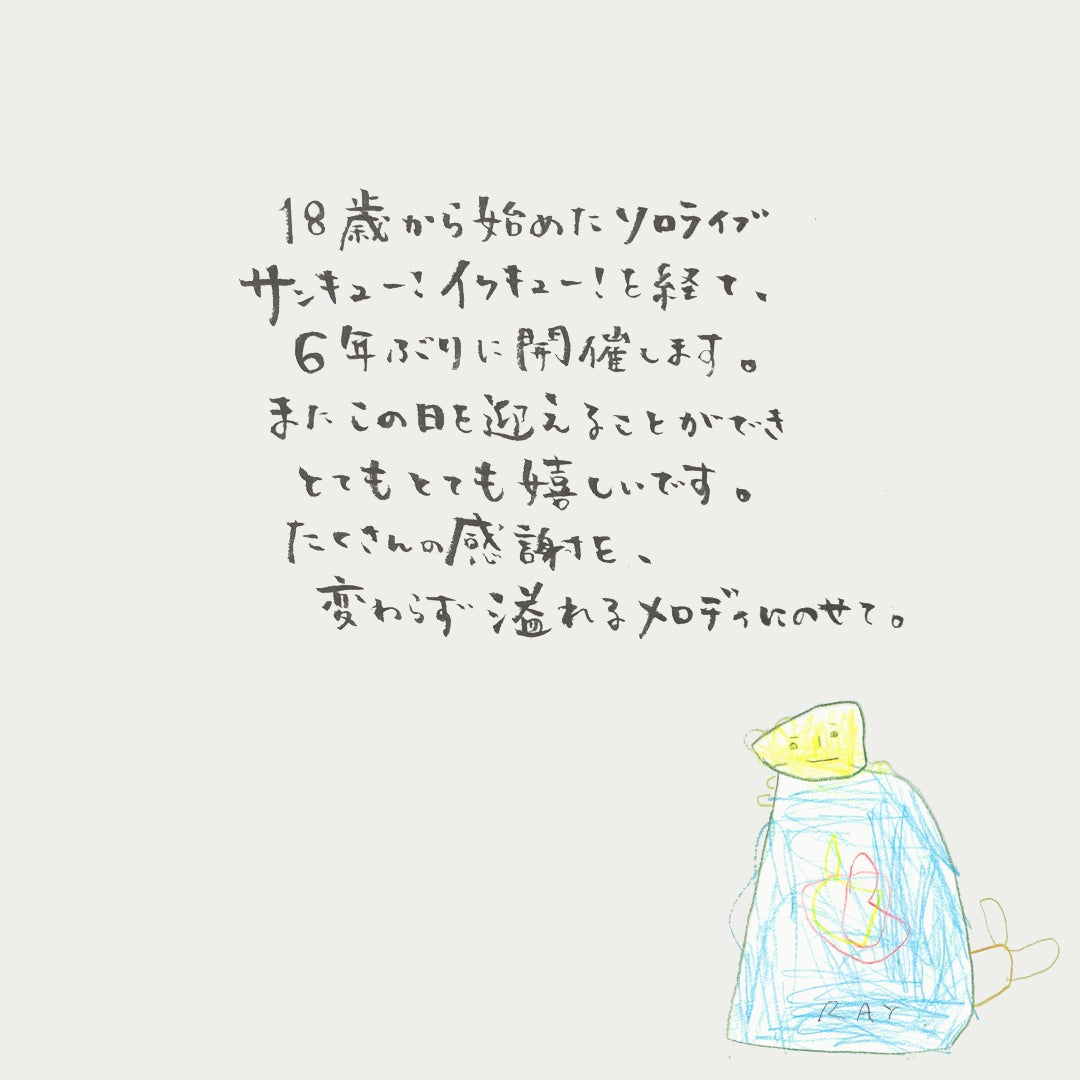 18歳から始めたソロライブ
サンキュー！イクキュー！を経て、
6年ぶりに開催します。
またこの日を迎えることができ
とてもとても嬉しいです。
たくさんの感謝を、
変わらず溢れるメロディにのせて。
RAY